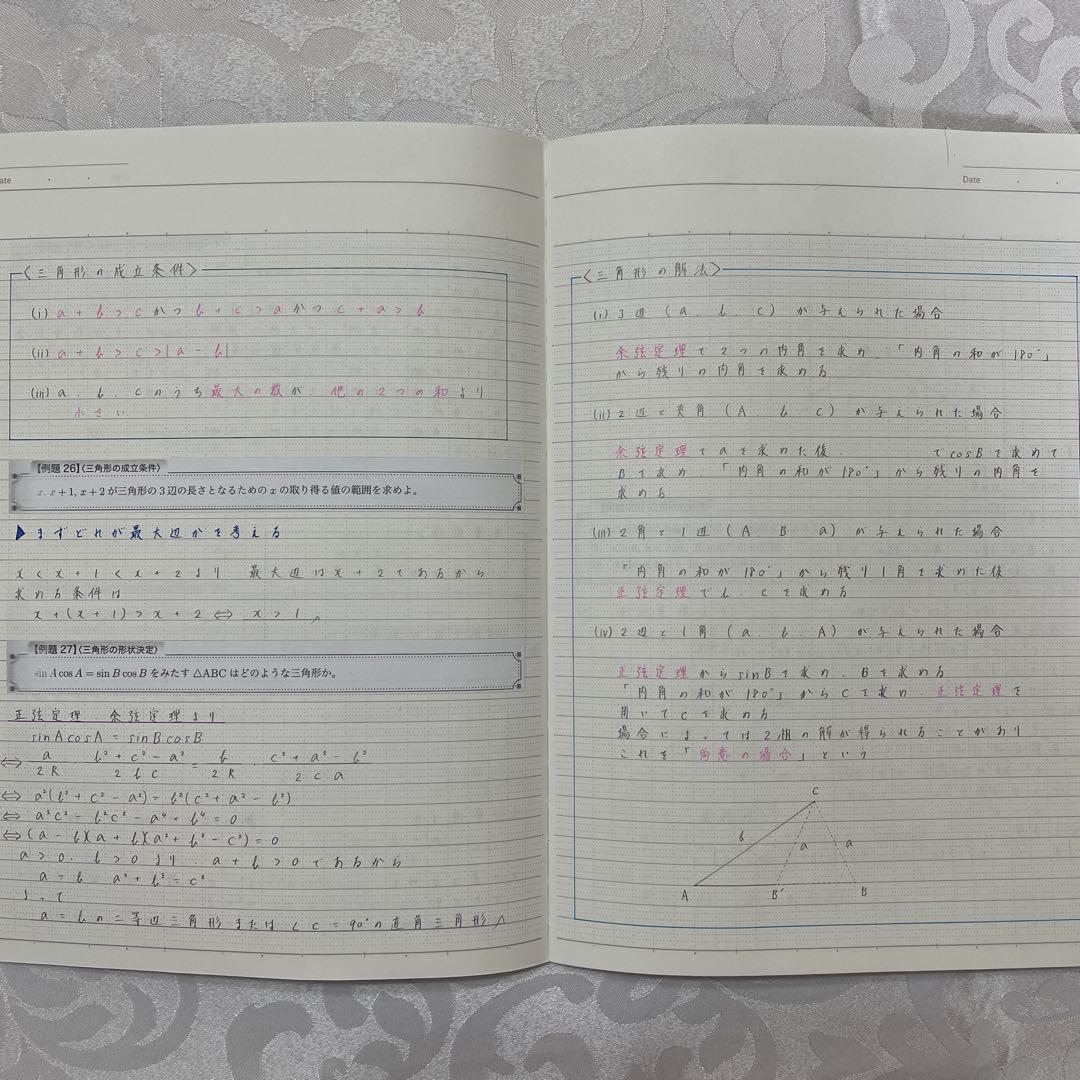 ate
〈三角形の成立条件〉
(i) a + b > c かつ b + c > a かつ c + a > b
(ii) a + b > c > |a - b|
(iii) a、b、cのうち最大の数が、他の2つの和より
小さい
【例題 26】〈三角形の成立条件〉
x, x+1, x+2 が三角形の3辺の長さとなるための x の取り得る値の範囲を求めよ。
▶ まずどれが最大辺かを考える
x < x + 1 < x + 2 より 最大辺は x + 2 であるから
求める条件は
x + (x + 1) > x + 2 ⇔ x > 1
【例題 27】〈三角形の形状決定〉
sin A cos A = sin B cos B をみたす △ABC はどのような三角形か。
正弦定理、余弦定理より
sinAcosA = sinBcosB
⇔ a/2R · (b² + c² - a²)/2bc = b/2R · (c² + a² - b²)/2ca
⇔ a²(b² + c² - a²) = b²(c² + a² - b²)
⇔ a²c² - b²c² - a⁴ + b⁴ = 0
⇔ (a - b)(a + b)(a² + b² - c²) = 0
a > 0、b > 0 より、a + b > 0 であるから
a = b、a² + b² = c²
よって
a = b の二等辺三角形または ∠C = 90°の直角三角形
Date
〈三角形の解法〉
(i) 3辺 (a、b、c) が与えられた場合
余弦定理で2つの内角を求め、「内角の和が180°」
から残りの内角を求める
(ii) 2辺と夾角 (A、b、c) が与えられた場合
余弦定理で a を求めた後、 で cosB を求めて
B を求め、「内角の和が180°」から残りの内角を
求める
(iii) 2角と1辺 (A、B、a) が与えられた場合
「内角の和が180°」から残り1角を求めた後、
正弦定理で b、c を求める
(iv) 2辺と1角 (a、b、A) が与えられた場合
正弦定理から sinB を求め、B を求める
「内角の和が180°」から C を求め、正弦定理を
用いて c を求める
場合によっては2組の解が得られることがあり
これを「両意の場合」という
C
b
a
a
A
B'
B